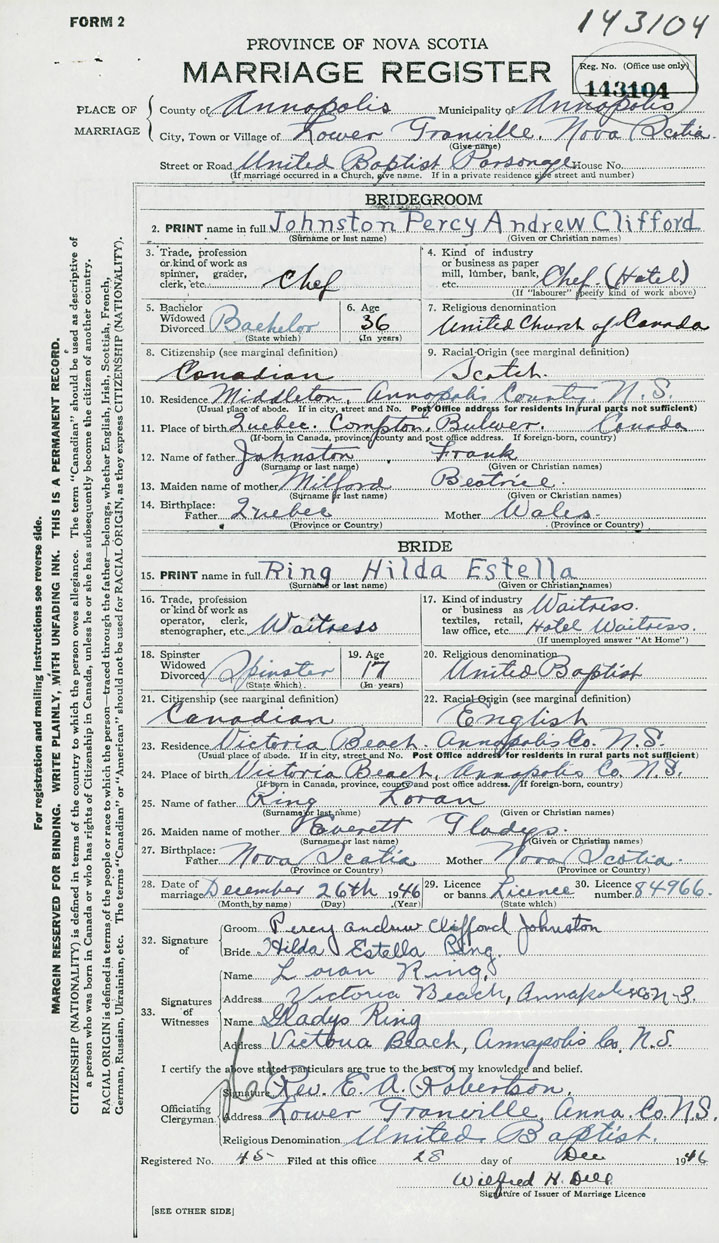 FORM 2
143104
PROVINCE OF NOVA SCOTIA
MARRIAGE REGISTER
Reg. No. (Office use only)
143104
PLACE OF MARRIAGE
County of Annapolis Municipality of Annapolis
City, Town or Village of Lower Granville. Nova Scotia.
(Give name)
Street or Road United Baptist Parsonage House No.
(If marriage occurred in a Church, give name. If in a private residence give street and number)
BRIDEGROOM
2. PRINT name in full Johnston Percy Andrew Clifford
(Surname or last name) (Given or Christian names)
3. Trade, profession or kind of work as spinner, grader, clerk, etc. Chef
4. Kind of industry or business as paper mill, lumber, bank, etc. Chef (Hotel)
(If "labourer" specify kind of work above)
5. Bachelor Widowed Divorced Bachelor
(State which)
6. Age 36
(In years)
7. Religious denomination
United Church of Canada
8. Citizenship (see marginal definition)
Canadian
9. Racial Origin (see marginal definition)
Scotch.
10. Residence Middleton, Annapolis County, N.S.
(Usual place of abode. If in city, street and No. Post Office address for residents in rural parts not sufficient)
11. Place of birth Quebec. Compton. Bulwer. Canada
(If born in Canada, province, county and post office address. If foreign-born, country)
12. Name of father Johnston Frank
(Surname or last name) (Given or Christian names)
13. Maiden name of mother Milford Beatrice.
(Surname or last name) (Given or Christian names)
14. Birthplace: Father Quebec Mother Wales.
(Province or Country) (Province or Country)
BRIDE
15. PRINT name in full Ring Hilda Estella
(Surname or last name) (Given or Christian names)
16. Trade, profession or kind of work as operator, clerk, stenographer, etc. Waitress
17. Kind of industry or business as textiles, retail, law office, etc. Waitress. Hotel Waitress.
(If unemployed answer "At Home")
18. Spinster Widowed Divorced Spinster
(State which)
19. Age 17
(In years)
20. Religious denomination
United Baptist
21. Citizenship (see marginal definition)
Canadian
22. Racial Origin (see marginal definition)
English
23. Residence Victoria Beach. Annapolis Co. N.S.
(Usual place of abode. If in city, street and No. Post Office address for residents in rural parts not sufficient)
24. Place of birth Victoria Beach, Annapolis Co. N.S.
(If born in Canada, province, county and post office address. If foreign-born, country)
25. Name of father Ring Loran
(Surname or last name) (Given or Christian names)
26. Maiden name of mother Everett Gladys.
(Surname or last name) (Given or Christian names)
27. Birthplace: Father Nova Scotia Mother Nova Scotia.
(Province or Country) (Province or Country)
28. Date of marriage December 26th 1946
(Month by name) (Day) (Year)
29. Licence or banns Licence
(State which)
30. Licence number 84966.
32. Signature of
Groom Percy Andrew Clifford Johnston
Bride Hilda Estella Ring.
33. Signatures of Witnesses
Name Loran Ring,
Address Victoria Beach, Annapolis Co N-S.
Name Gladys Ring
Address Victoria Beach, Annapolis Co. N.S.
I certify the above stated particulars are true to the best of my knowledge and belief.
Officiating Clergyman
Signature Rev. E. A. Robertson.
Address Lower Granville, Anna. Co. N.S.
Religious Denomination United Baptist.
Registered No. 45 Filed at this office 28 day of Dec 1946
Wilfred H. Dell
Signature of Issuer of Marriage Licence
[SEE OTHER SIDE]
For registration and mailing instructions see reverse side.
MARGIN RESERVED FOR BINDING. WRITE PLAINLY, WITH UNFADING INK. THIS IS A PERMANENT RECORD.
CITIZENSHIP (NATIONALITY) is defined in terms of the country to which the person owes allegiance. The term "Canadian" should be used as descriptive of
a person who was born in Canada or who has rights of Citizenship in Canada, unless he or she has subsequently become the citizen of another country.
RACIAL ORIGIN is defined in terms of the people or race to which the person—traced through the father—belongs, whether English, Irish, Scottish, French,
German, Russian, Ukrainian, etc. The terms "Canadian" or "American" should not be used for RACIAL ORIGIN, as they express CITIZENSHIP (NATIONALITY).